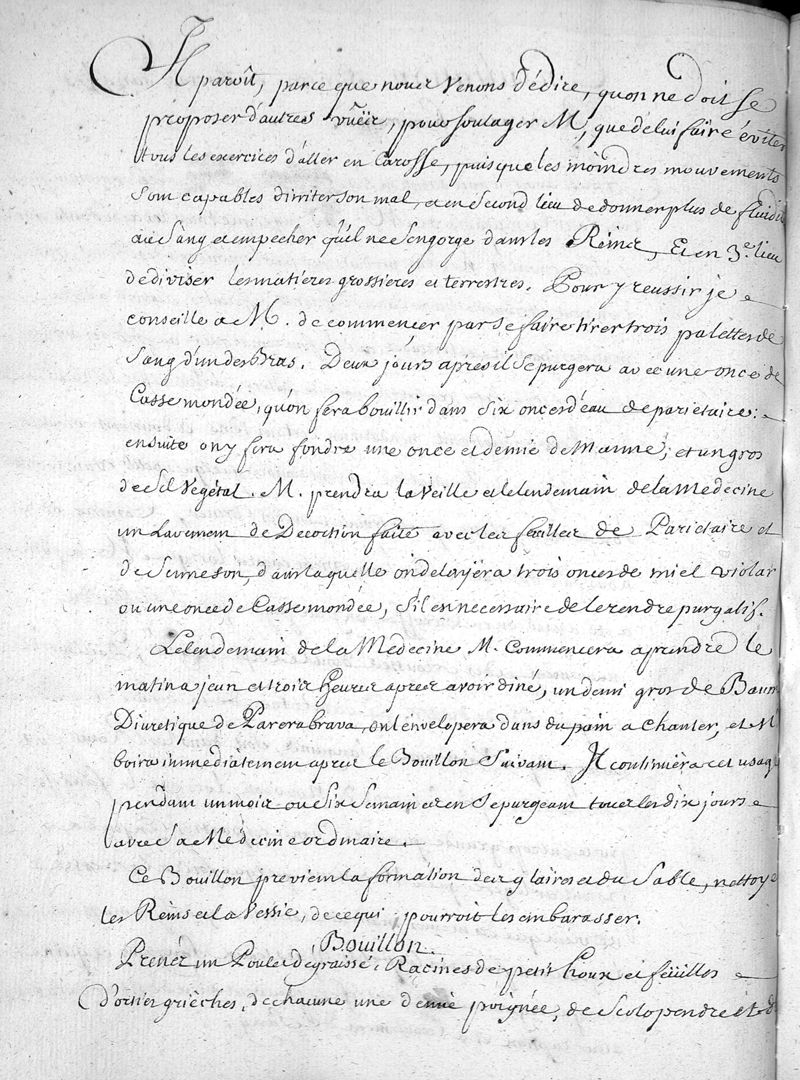 Il paroît, parce que nous Venons d'édire, quon ne doit se
proposer d'autres vûes, pour soulager M, que de lui faire éviter
tous les exercices d'aller en Carosse, puisque les moindres mouvements
sont capables d'irriter son mal, et en second lieu de donner plus de fluidité
au Sang et empecher qu'il ne Sengorge dans les Reins, Et en 3.e lieu
de diviser les matieres grossieres et terrestres. Pour y reussir je
conseille a M. de commencer par se faire tirer trois palettes de
Sang d'un des Bras. Deux jours apres il se purgera avec une once de
Casse mondée, qu'on fera bouillir dans Six onces d'eau de parietaire:
ensuite on y fera fondre une once et demie de Manne, et un gros
de Sel Vegétal. M. prendra la Veille et le lendemain de la Medecine
un Lavement de Decoction faite avec les feuilles de Parietaire et
de Senneson, dans laquelle on delayéra trois onces de miel violat
ou une once de Casse mondée, S'il est necessaire de le rendre purgatif.
Le lendemain de la Médecine M. Commencera a prendre le
matin a jeun et trois heures apres avoir diné, un demi gros de Baume
Diuretique de Parera brava, on l'envelopera dans du pain a Chanter, et M
boira immediatement apres le Bouillon Suivant. Il continuëra cet usage
pendant un mois ou Six Semaines en Se purgeant tous les dix jours
avec Sa Médecine ordinaire.
Ce Bouillon previent la formation des glaires et du Sable, nettoye
les Reins et la Vessie, de ce qui pourroit les embarasser.
Bouillon.
Prenés un Poulet dégraissé, Racines de petit houx et feüilles
d'orties griéches, de chacune une demie poignée, de Scolopendre et de